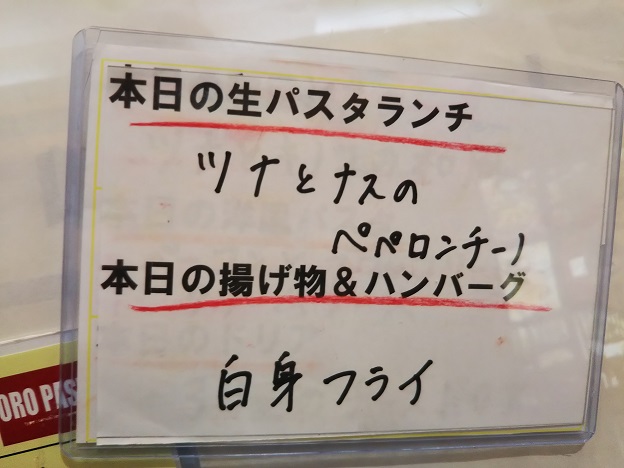 本日の生パスタランチ
ツナとナスの
ペペロンチーノ
本日の揚げ物&ハンバーグ
白身フライ
ORO PAS